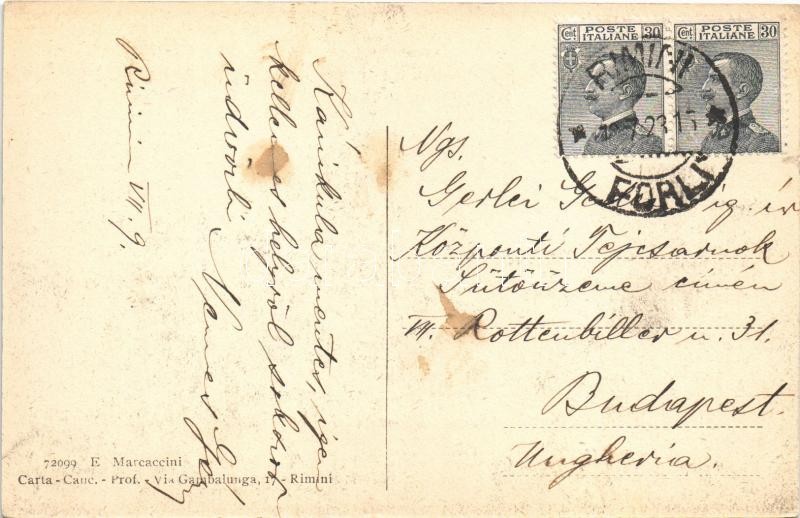 Kánikula mentes, igen
kellemes helyről sokszor
üdvözli Nemes
Rimini VII. 9.
72099 E Marcaccini
Carta - Canc. - Prof. - Via Gambalunga, 17 - Rimini
Cent POSTE 30
ITALIANE
Cent POSTE 30
ITALIANE
RIMINI
23.15
FORLI
Ngs.
Gerlei ig. úr
Központi Tejcsarnok
Sütőüzeme címén
VII. Rottenbiller u. 31.
Budapest.
Ungheria.